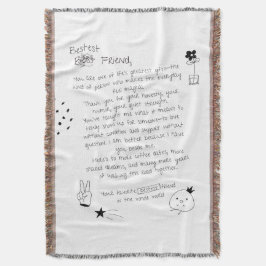 Bestest
Friend,
You are one of life's greatest gifts—the
kind of person who makes the everyday
feel magical.
Thank you for your honesty, your
humor, your quiet strength.
You've taught me what it means to
truly show up for someone—to love
without condition and support without
question. I am better because I have
you beside me.
Here's to more coffee dates, more
shared dreams, and many more years
of walking this road together.
Your favorite friend
in the whole world